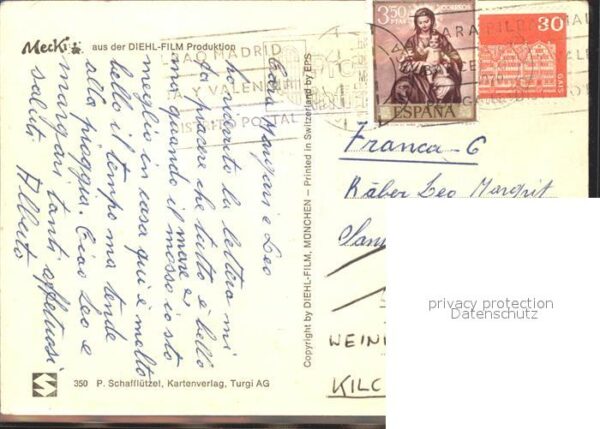 Mecki aus der DIEHL-FILM Produktion
BAO MADRID
Y VALEN
POSTAL
3,50
PTAS
CORREOS
ESPAÑA
30
Cara Margari e Leo
ho ricevuto la lettera mi
fa piacere che tutto è bello
anzi quando il mare è
mosso io sto
meglio in casa qui è molto
bello il tempo ma tende
alla pioggia. Ciao Leo e
margari tanti affettuosi
saluti Alberto
Copyright by DIEHL-FILM, MÜNCHEN – Printed in Switzerland by EPS
Franca-6
Räber Leo Margrit
WEIN
KILC
privacy protection
Datenschutz
350 P. Schafflützel, Kartenverlag, Turgi AG